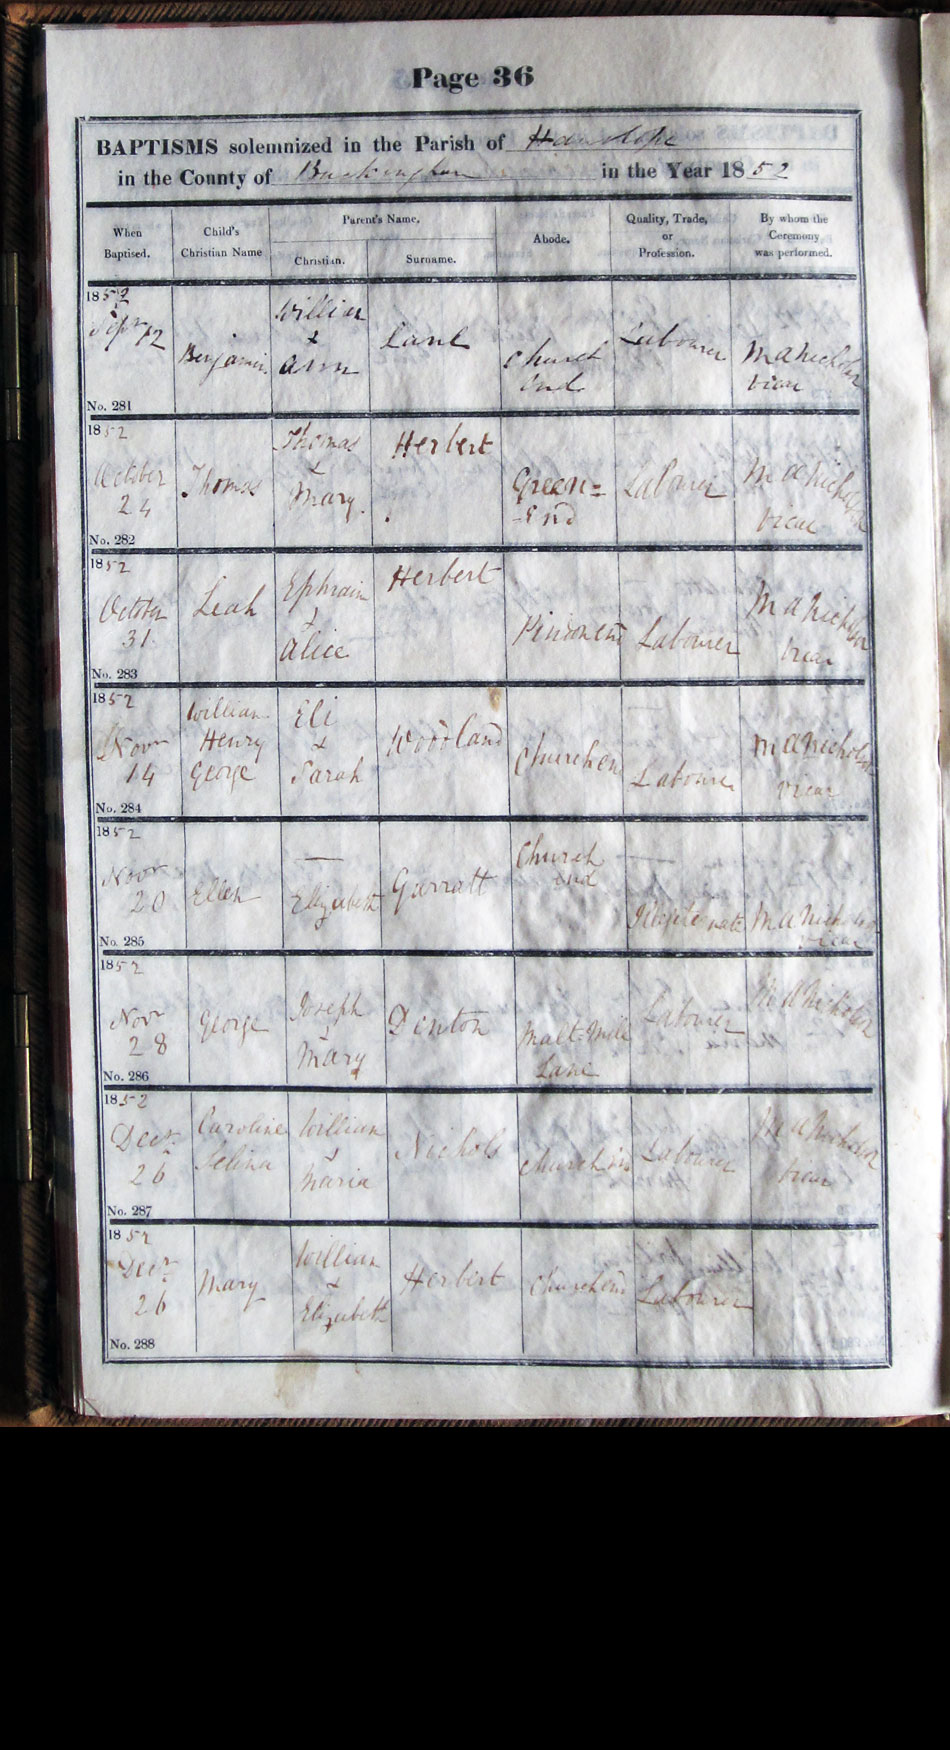 Page 36
BAPTISMS solemnized in the Parish of Hanslope
in the County of Buckingham in the Year 1852
When Baptised.
Child's Christian Name
Parent's Name.
Christian.
Surname.
Abode.
Quality, Trade, or Profession.
By whom the Ceremony was performed.
1852
Sepr 12
Benjamin
William
&
Ann
Lane
Church
End
Labourer
M A Nicholson
Vicar
No. 281
1852
October
24
Thomas
Thomas
&
Mary.
Herbert
Green=
-End
Labourer
M A Nicholson
Vicar
No. 282
1852
October
31
Leah
Ephraim
&
Alice
Herbert
Pindon End
Labourer
M A Nicholson
Vicar
No. 283
1852
Novr
14
William
Henry
George
Eli
&
Sarah
Woodland
Church en
Labourer
M A Nicholson
Vicar
No. 284
1852
Novr
20
Ellen
—
Elizabeth
Garratt
Church
end
Illegitemate
M A Nicholson
Vicar
No. 285
1852
Novr
28
George
Joseph
&
Mary
Denton
Malt-Mill
Lane
Labourer
M A Nicholson
No. 286
1852
Decr
26
Caroline
Selina
William
&
Maria
Nichols
Church end
Labourer
M A Nicholson
Vicar
No. 287
1852
Decr
26
Mary
William
&
Elizabeth
Herbert
Church end
Labourer
No. 288